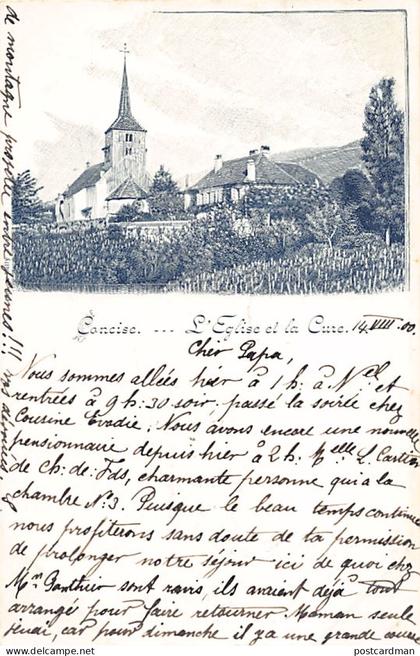 Concise. --- L'Eglise et la Cure. 14 VIII. 00.
Cher Papa,
Nous sommes allées hier à 1 h. à N.el et
rentrées à 9 h. 30 soir; passé la soirée chez
Cousine Evadie. Nous avons encore une nouvelle
pensionnaire depuis hier à 2 h. Melle L. Cartier
de Ch: de: Fds, charmante personne qui a la
chambre No. 3. Puisque le beau temps continue
nous profiterons sans doute de ta permission
de prolonger notre séjour ici de quoi chez
Mm Ganthier sont ravis, ils avaient déjà tout
arrangé pour faire retourner Maman seule
jeudi, car pour dimanche il y a une grande course
de montagne projetée entre jeunes!!!
© postcardman
www.delcampe.net postcardman